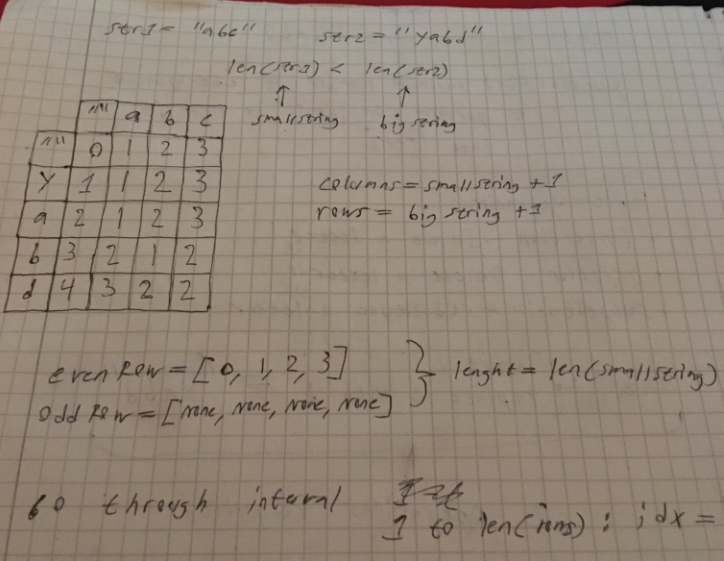 str1 = "abc" str2 = "yabd"
len(str1) < len(str2)
↑ ↑
smallstring big string
"" a b c
"" 0 1 2 3
y 1 1 2 3
a 2 1 2 3
b 3 2 1 2
d 4 3 2 2
columns = smallstring + 1
rows = big string + 1
evenRow = [0, 1, 2, 3]
oddRow = [none, none, none, none]
} lenght = len(smallstring)
Go through interval
1 to len(rows) : idx =